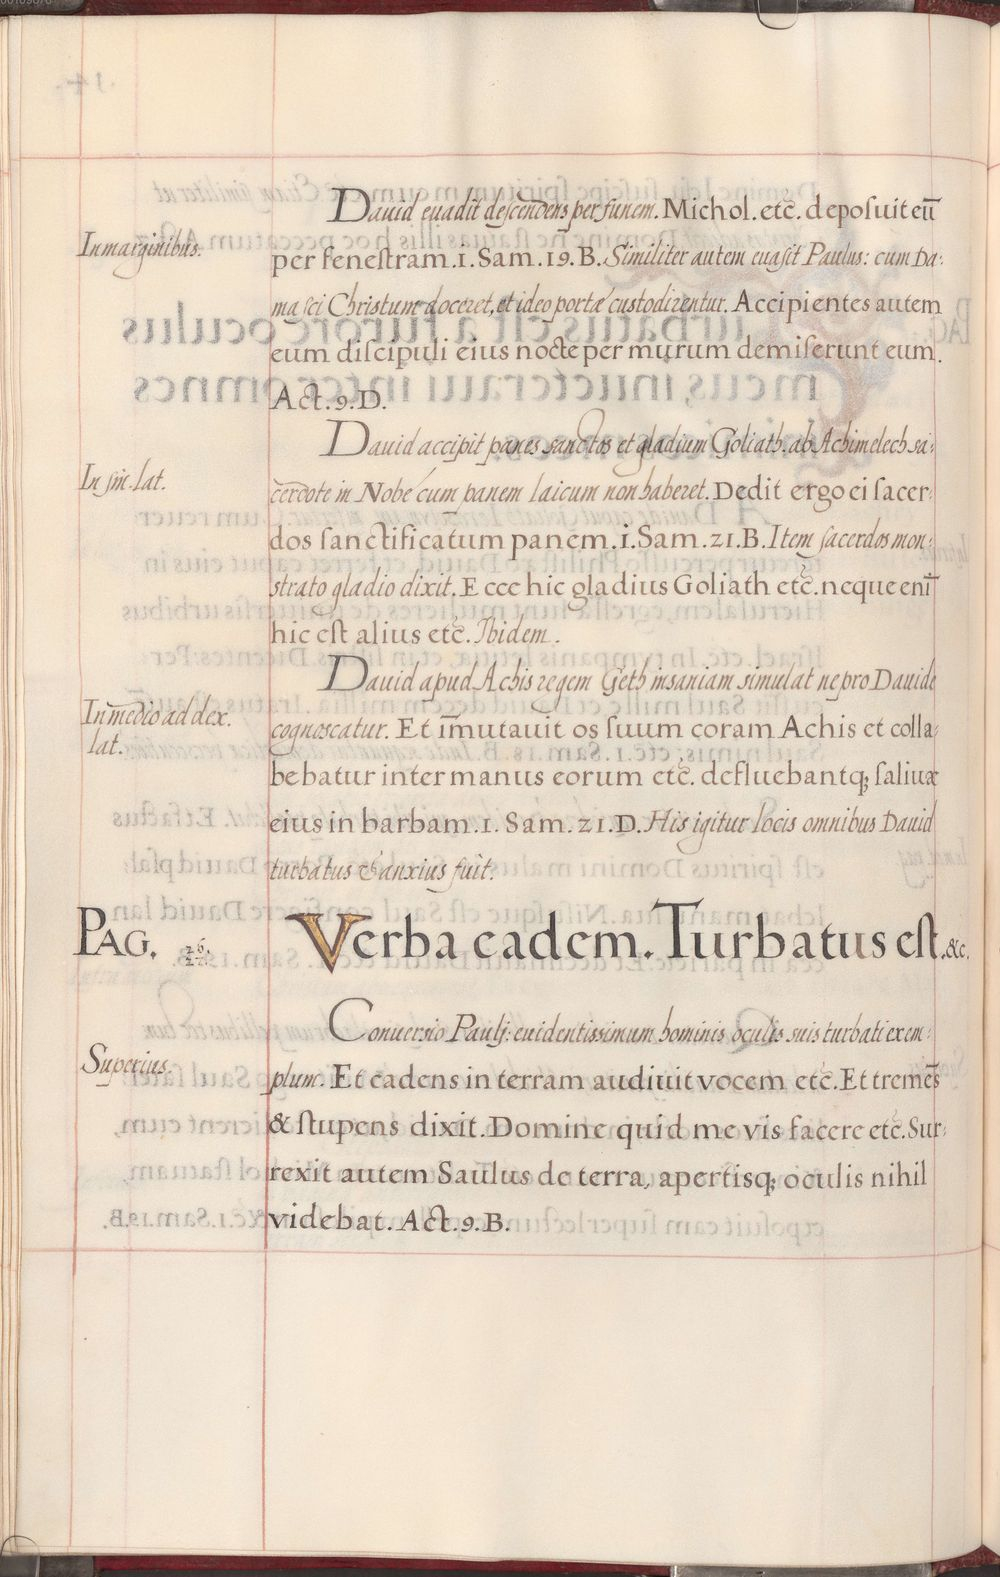 Dauid euadit descendens per funem. Michol. etc̄. deposuit eū
In marginibus.
per fenestram. 1. Sam. 19. B. Similiter autem euasit Paulus: cum Da:
masci Christum doceret, et ideo portæ custodirentur. Accipientes autem
eum discipuli eius nocte per murum demiserunt eum.
Act. 9. D.
Dauid accipit panes sanctos et gladium Goliath. ab Achimelech sa:
In sin̄. lat.
cerdote in Nobe cum panem laicum non haberet. Dedit ergo ei sacer:
dos sanctificatum panem. 1. Sam. 21. B. Item sacerdos mon:
strato gladio dixit. Ecce hic gladius Goliath etc̄. neque enī
hic est alius etc̄. Ibidem.
Dauid apud Achis regem Geth insaniam simulat ne pro Dauide
In medio ad dex.
lat.
cognoscatur. Et im̄utauit os suum coram Achis et colla:
bebatur inter manus eorum etc̄. defluebantq; saliuæ
eius in barbam. 1. Sam. 21. D. His igitur locis omnibus Dauid
turbatus & anxius fuit.
PAG. Verba eadem. Turbatus est. &c.
Conuersio Paulj: euidentissimum hominis oculis suis turbati exem:
Superius.
plum. Et cadens in terram audiuit vocem etc̄. Et tremēs
& stupens dixit. Domine quid me vis facere etc̄. Sur:
rexit autem Saulus de terra, apertisq; oculis nihil
videbat. Act. 9. B.